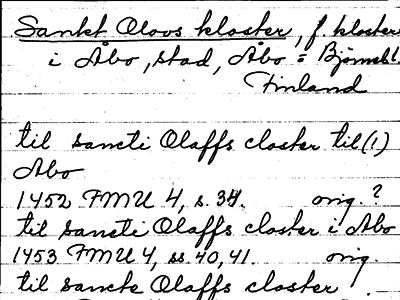 Sankt Olovs kloster, f. kloster
i Åbo, stad, Åbo = Björneb.
Finland
til sancti Olaffs closter til(!)
Abo
1452 FMU 4, s. 34. orig. ?
til sancti Olaffs closter i Abo
1453 FMU 4, ss. 40, 41. orig.
til sancte Olaffs closter